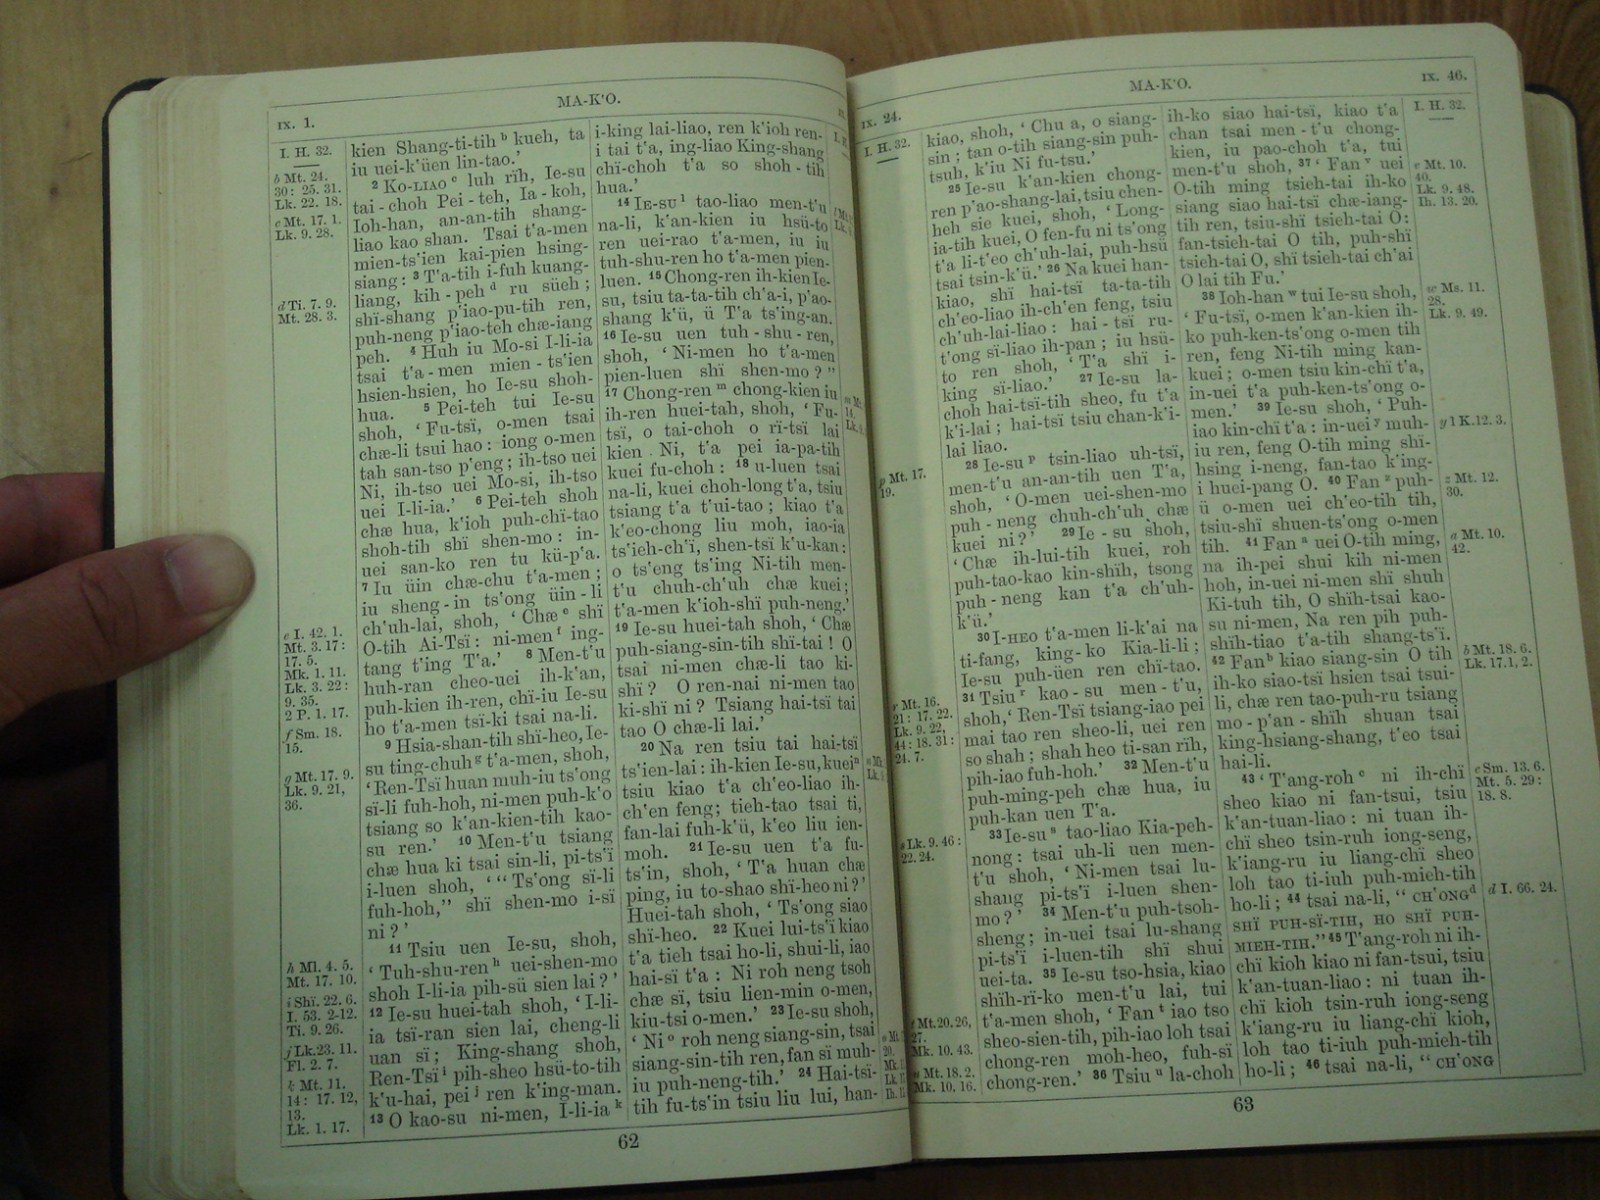 MA-K'O.
IX. 1.
I. H. 32.
b Mt. 24.
30: 25. 31.
Lk. 22. 18.
c Mt. 17. 1.
Lk. 9. 28.
d Ti. 7. 9.
Mt. 28. 3.
e I. 42. 1.
Mt. 3. 17:
17. 5.
Mk. 1. 11.
Lk. 3. 22:
9. 35.
2 P. 1. 17.
f Sm. 18.
15.
g Mt. 17. 9.
Lk. 9. 21,
36.
h Ml. 4. 5.
Mt. 17. 10.
i Shï. 22. 6.
I. 53. 2-12.
Ti. 9. 26.
j Lk. 23. 11.
Fl. 2. 7.
k Mt. 11.
14: 17. 12,
13.
Lk. 1. 17.
kien Shang-ti-tih ᵇ kueh, ta
iu uei-k'üen lin-tao.'
2 KO-LIAO ᶜ luh rïh, Ie-su
tai-choh Pei-teh, Ia-koh,
Ioh-han, an-an-tih shang-
liao kao shan. Tsai t'a-men
mien-ts'ien kai-pien hsing-
siang: 3 T'a-tih i-fuh kuang-
liang, kih-peh ᵈ ru süeh;
shï-shang p'iao-pu-tih ren,
puh-neng p'iao-teh chæ-iang
peh. 4 Huh iu Mo-si I-li-ia
tsai t'a-men mien-ts'ien
hsien-hsien, ho Ie-su shoh-
hua. 5 Pei-teh tui Ie-su
shoh, 'Fu-tsï, o-men tsai
chæ-li tsui hao: iong o-men
tah san-tso p'eng; ih-tso uei
Ni, ih-tso uei Mo-si, ih-tso
uei I-li-ia.' 6 Pei-teh shoh
chæ hua, k'ioh puh-chï-tao
shoh-tih shï shen-mo: in-
uei san-ko ren tu kü-p'a.
7 Iu üin chæ-chu t'a-men;
iu sheng-in ts'ong üin-li
ch'uh-lai, shoh, 'Chæ ᵉ shï
O-tih Ai-Tsï: ni-men ᶠ ing-
tang t'ing T'a.' 8 Men-t'u
huh-ran cheo-uei ih-k'an,
puh-kien ih-ren, chï-iu Ie-su
ho t'a-men tsï-ki tsai na-li.
9 Hsia-shan-tih shï-heo, Ie-
su ting-chuh ᵍ t'a-men, shoh,
'Ren-Tsï huan muh-iu ts'ong
sï-li fuh-hoh, ni-men puh-k'o
tsiang so k'an-kien-tih kao-
su ren.' 10 Men-t'u tsiang
chæ hua ki tsai sin-li, pi-ts'ï
i-luen shoh, '"Ts'ong sï-li
fuh-hoh," shï shen-mo i-sï
ni?'
11 Tsiu uen Ie-su, shoh,
'Tuh-shu-ren ʰ uei-shen-mo
shoh I-li-ia pih-sü sien lai?'
12 Ie-su huei-tah shoh, 'I-li-
ia tsï-ran sien lai, cheng-li
uan sï; King-shang shoh,
Ren-Tsï ⁱ pih-sheo hsü-to-tih
k'u-hai, pei ʲ ren k'ing-man.
13 O kao-su ni-men, I-li-ia ᵏ
i-king lai-liao, ren k'ioh ren-
i tai t'a, ing-liao King-shang
chï-choh t'a so shoh-tih
hua.'
14 IE-SU ˡ tao-liao men-t'u
na-li, k'an-kien iu hsü-to
ren uei-rao t'a-men, iu iu
tuh-shu-ren ho t'a-men pien-
luen. 15 Chong-ren ih-kien Ie-
su, tsiu ta-ta-tih ch'a-i, p'ao-
shang k'ü, ü T'a ts'ing-an.
16 Ie-su uen tuh-shu-ren,
shoh, 'Ni-men ho t'a-men
pien-luen shï shen-mo?"
17 Chong-ren ᵐ chong-kien iu
ih-ren huei-tah, shoh, 'Fu-
tsï, o tai-choh o rï-tsï lai
kien Ni, t'a pei ia-pa-tih
kuei fu-choh: 18 u-luen tsai
na-li, kuei choh-long t'a, tsiu
tsiang t'a t'ui-tao; kiao t'a
k'eo-chong liu moh, iao-ia
ts'ieh-ch'ï, shen-tsï k'u-kan:
o ts'eng ts'ing Ni-tih men-
t'u chuh-ch'uh chæ kuei;
t'a-men k'ioh-shï puh-neng.'
19 Ie-su huei-tah shoh, 'Chæ
puh-siang-sin-tih shï-tai! O
tsai ni-men chæ-li tao ki-
shï? O ren-nai ni-men tao
ki-shï ni? Tsiang hai-tsï tai
tao O chæ-li lai.'
20 Na ren tsiu tai hai-tsï
ts'ien-lai: ih-kien Ie-su, kuei ⁿ
tsiu kiao t'a ch'eo-liao ih-
ch'en feng; tieh-tao tsai ti,
fan-lai fuh-k'ü, k'eo liu ien-
moh. 21 Ie-su uen t'a fu-
ts'in, shoh, 'T'a huan chæ
ping, iu to-shao shï-heo ni?'
Huei-tah shoh, 'Ts'ong siao
shï-heo. 22 Kuei lui-ts'ï kiao
t'a tieh tsai ho-li, shui-li, iao
hai-sï t'a: Ni roh neng tsoh
chæ sï, tsiu lien-min o-men,
kiu-tsi o-men.' 23 Ie-su shoh,
'Ni ᵒ roh neng siang-sin, tsai
siang-sin-tih ren, fan sï muh-
iu puh-neng-tih.' 24 Hai-tsï-
tih fu-ts'in tsiu liu lui, han-
62
MA-K'O.
IX. 24.
IX. 46.
I. H. 32.
p Mt. 17.
19.
r Mt. 16.
21: 17. 22.
Lk. 9. 22,
44: 18. 31:
24. 7.
s Lk. 9. 46:
22. 24.
t Mt. 20. 26,
27.
Mk. 10. 43.
u Mt. 18. 2.
Mk. 10. 16.
kiao, shoh, 'Chu a, o siang-
sin; tan o-tih siang-sin puh-
tsuh, k'iu Ni fu-tsu.'
25 Ie-su k'an-kien chong-
ren p'ao-shang-lai, tsiu chen-
heh sie kuei, shoh, 'Long-
ia-tih kuei, O fen-fu ni ts'ong
t'a li-t'eo ch'uh-lai, puh-hsü
tsai tsin-k'ü.' 26 Na kuei han-
kiao, shï hai-tsï ta-ta-tih
ch'eo-liao ih-ch'en feng, tsiu
ch'uh-lai-liao: hai-tsï ru-
t'ong sï-liao ih-pan; iu hsü-
to ren shoh, 'T'a shï i-
king sï-liao.' 27 Ie-su la-
choh hai-tsï-tih sheo, fu t'a
k'i-lai; hai-tsï tsiu chan-k'i-
lai liao.
28 Ie-su ᵖ tsin-liao uh-tsï,
men-t'u an-an-tih uen T'a,
shoh, 'O-men uei-shen-mo
puh-neng chuh-ch'uh chæ
kuei ni?' 29 Ie-su shoh,
'Chæ ih-lui-tih kuei, roh
puh-tao-kao kin-shïh, tsong
puh-neng kan t'a ch'uh-
k'ü.'
30 I-HEO t'a-men li-k'ai na
ti-fang, king-ko Kia-li-li;
Ie-su puh-üen ren chï-tao.
31 Tsiu ʳ kao-su men-t'u,
shoh, 'Ren-Tsï tsiang-iao pei
mai tao ren sheo-li, uei ren
so shah; shah heo ti-san rïh,
pih-iao fuh-hoh.' 32 Men-t'u
puh-ming-peh chæ hua, iu
puh-kan uen T'a.
33 Ie-su ˢ tao-liao Kia-peh-
nong: tsai uh-li uen men-
t'u shoh, 'Ni-men tsai lu-
shang pi-ts'ï i-luen shen-
mo?' 34 Men-t'u puh-tsoh-
sheng; in-uei tsai lu-shang
pi-ts'ï i-luen-tih shï shui
uei-ta. 35 Ie-su tso-hsia, kiao
shïh-rï-ko men-t'u lai, tui
t'a-men shoh, 'Fan ᵗ iao tso
sheo-sien-tih, pih-iao loh tsai
chong-ren moh-heo, fuh-sï
chong-ren.' 36 Tsiu ᵘ la-choh
ih-ko siao hai-tsï, kiao t'a
chan tsai men-t'u chong-
kien, iu pao-choh t'a, tui
men-t'u shoh, 37 'Fan ᵛ uei
O-tih ming tsieh-tai ih-ko
siang siao hai-tsï chæ-iang-
tih ren, tsiu-shï tsieh-tai O:
fan-tsieh-tai O tih, puh-shï
tsieh-tai O, shï tsieh-tai ch'ai
O lai tih Fu.'
38 Ioh-han ʷ tui Ie-su shoh,
'Fu-tsï, o-men k'an-kien ih-
ko puh-ken-ts'ong o-men tih
ren, feng Ni-tih ming kan-
kuei; o-men tsiu kin-chï t'a,
in-uei t'a puh-ken-ts'ong o-
men.' 39 Ie-su shoh, 'Puh-
iao kin-chï t'a: in-uei ʸ muh-
iu ren, feng O-tih ming shï-
hsing i-neng, fan-tao k'ing-
i huei-pang O. 40 Fan ᶻ puh-
ü o-men uei ch'eo-tih tih,
tsiu-shï shuen-ts'ong o-men
tih. 41 Fan ᵃ uei O-tih ming,
na ih-pei shui kih ni-men
hoh, in-uei ni-men shï shuh
Ki-tuh tih, O shïh-tsai kao-
su ni-men, Na ren pih puh-
shïh-tiao t'a-tih shang-ts'ï.
42 Fan ᵇ kiao siang-sin O tih
ih-ko siao-tsï hsien tsai tsui-
li, chæ ren tao-puh-ru tsiang
mo-p'an-shïh shuan tsai
king-hsiang-shang, t'eo tsai
hai-li.
43 'T'ang-roh ᶜ ni ih-chï
sheo kiao ni fan-tsui, tsiu
k'an-tuan-liao: ni tuan ih-
chï sheo tsin-ruh iong-seng,
k'iang-ru iu liang-chï sheo
loh tao ti-iuh puh-mieh-tih
ho-li; 44 tsai na-li, "CH'ONG ᵈ
SHÏ PUH-SÏ-TIH, HO SHÏ PUH-
MIEH-TIH." 45 T'ang-roh ni ih-
chï kioh kiao ni fan-tsui, tsiu
k'an-tuan-liao: ni tuan ih-
chï kioh tsin-ruh iong-seng
k'iang-ru iu liang-chï kioh,
loh tao ti-iuh puh-mieh-tih
ho-li; 46 tsai na-li, "CH'ONG
I. H. 32.
v Mt. 10.
40.
Lk. 9. 48.
Ih. 13. 20.
w Ms. 11.
28.
Lk. 9. 49.
y 1 K. 12. 3.
z Mt. 12.
30.
a Mt. 10.
42.
b Mt. 18. 6.
Lk. 17. 1, 2.
c Sm. 13. 6.
Mt. 5. 29:
18. 8.
d I. 66. 24.
63